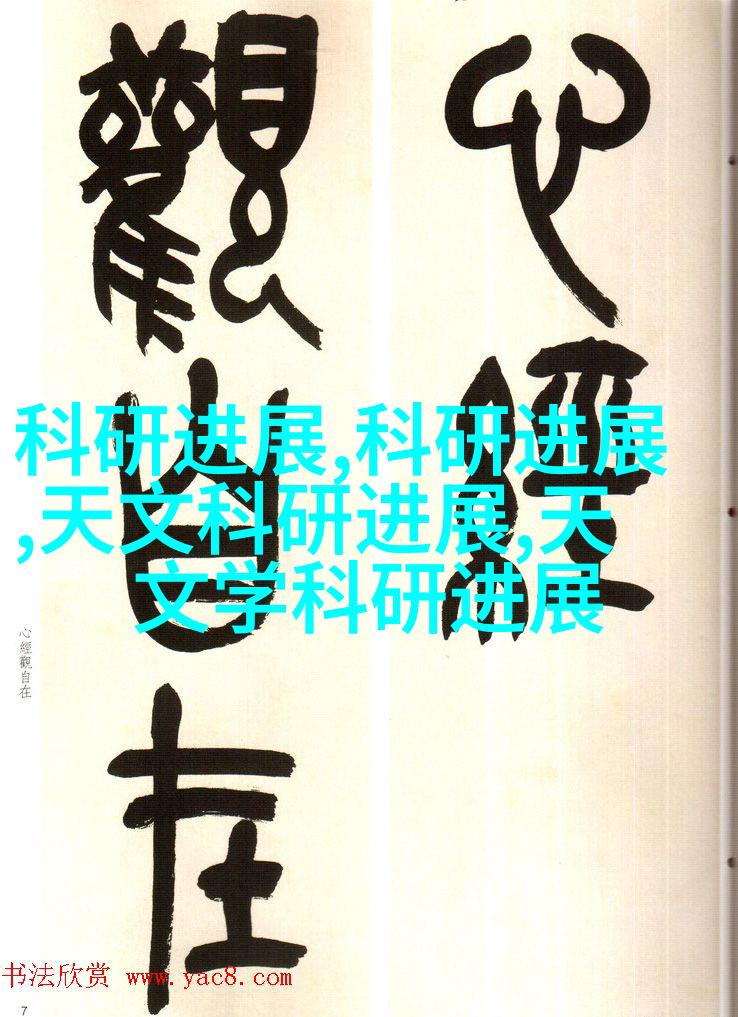 心經
觀自在
科研进展,科研进展
,天文科研进展,天
文学科研进展
心經觀自在
书法欣赏 www.yac8.com
7